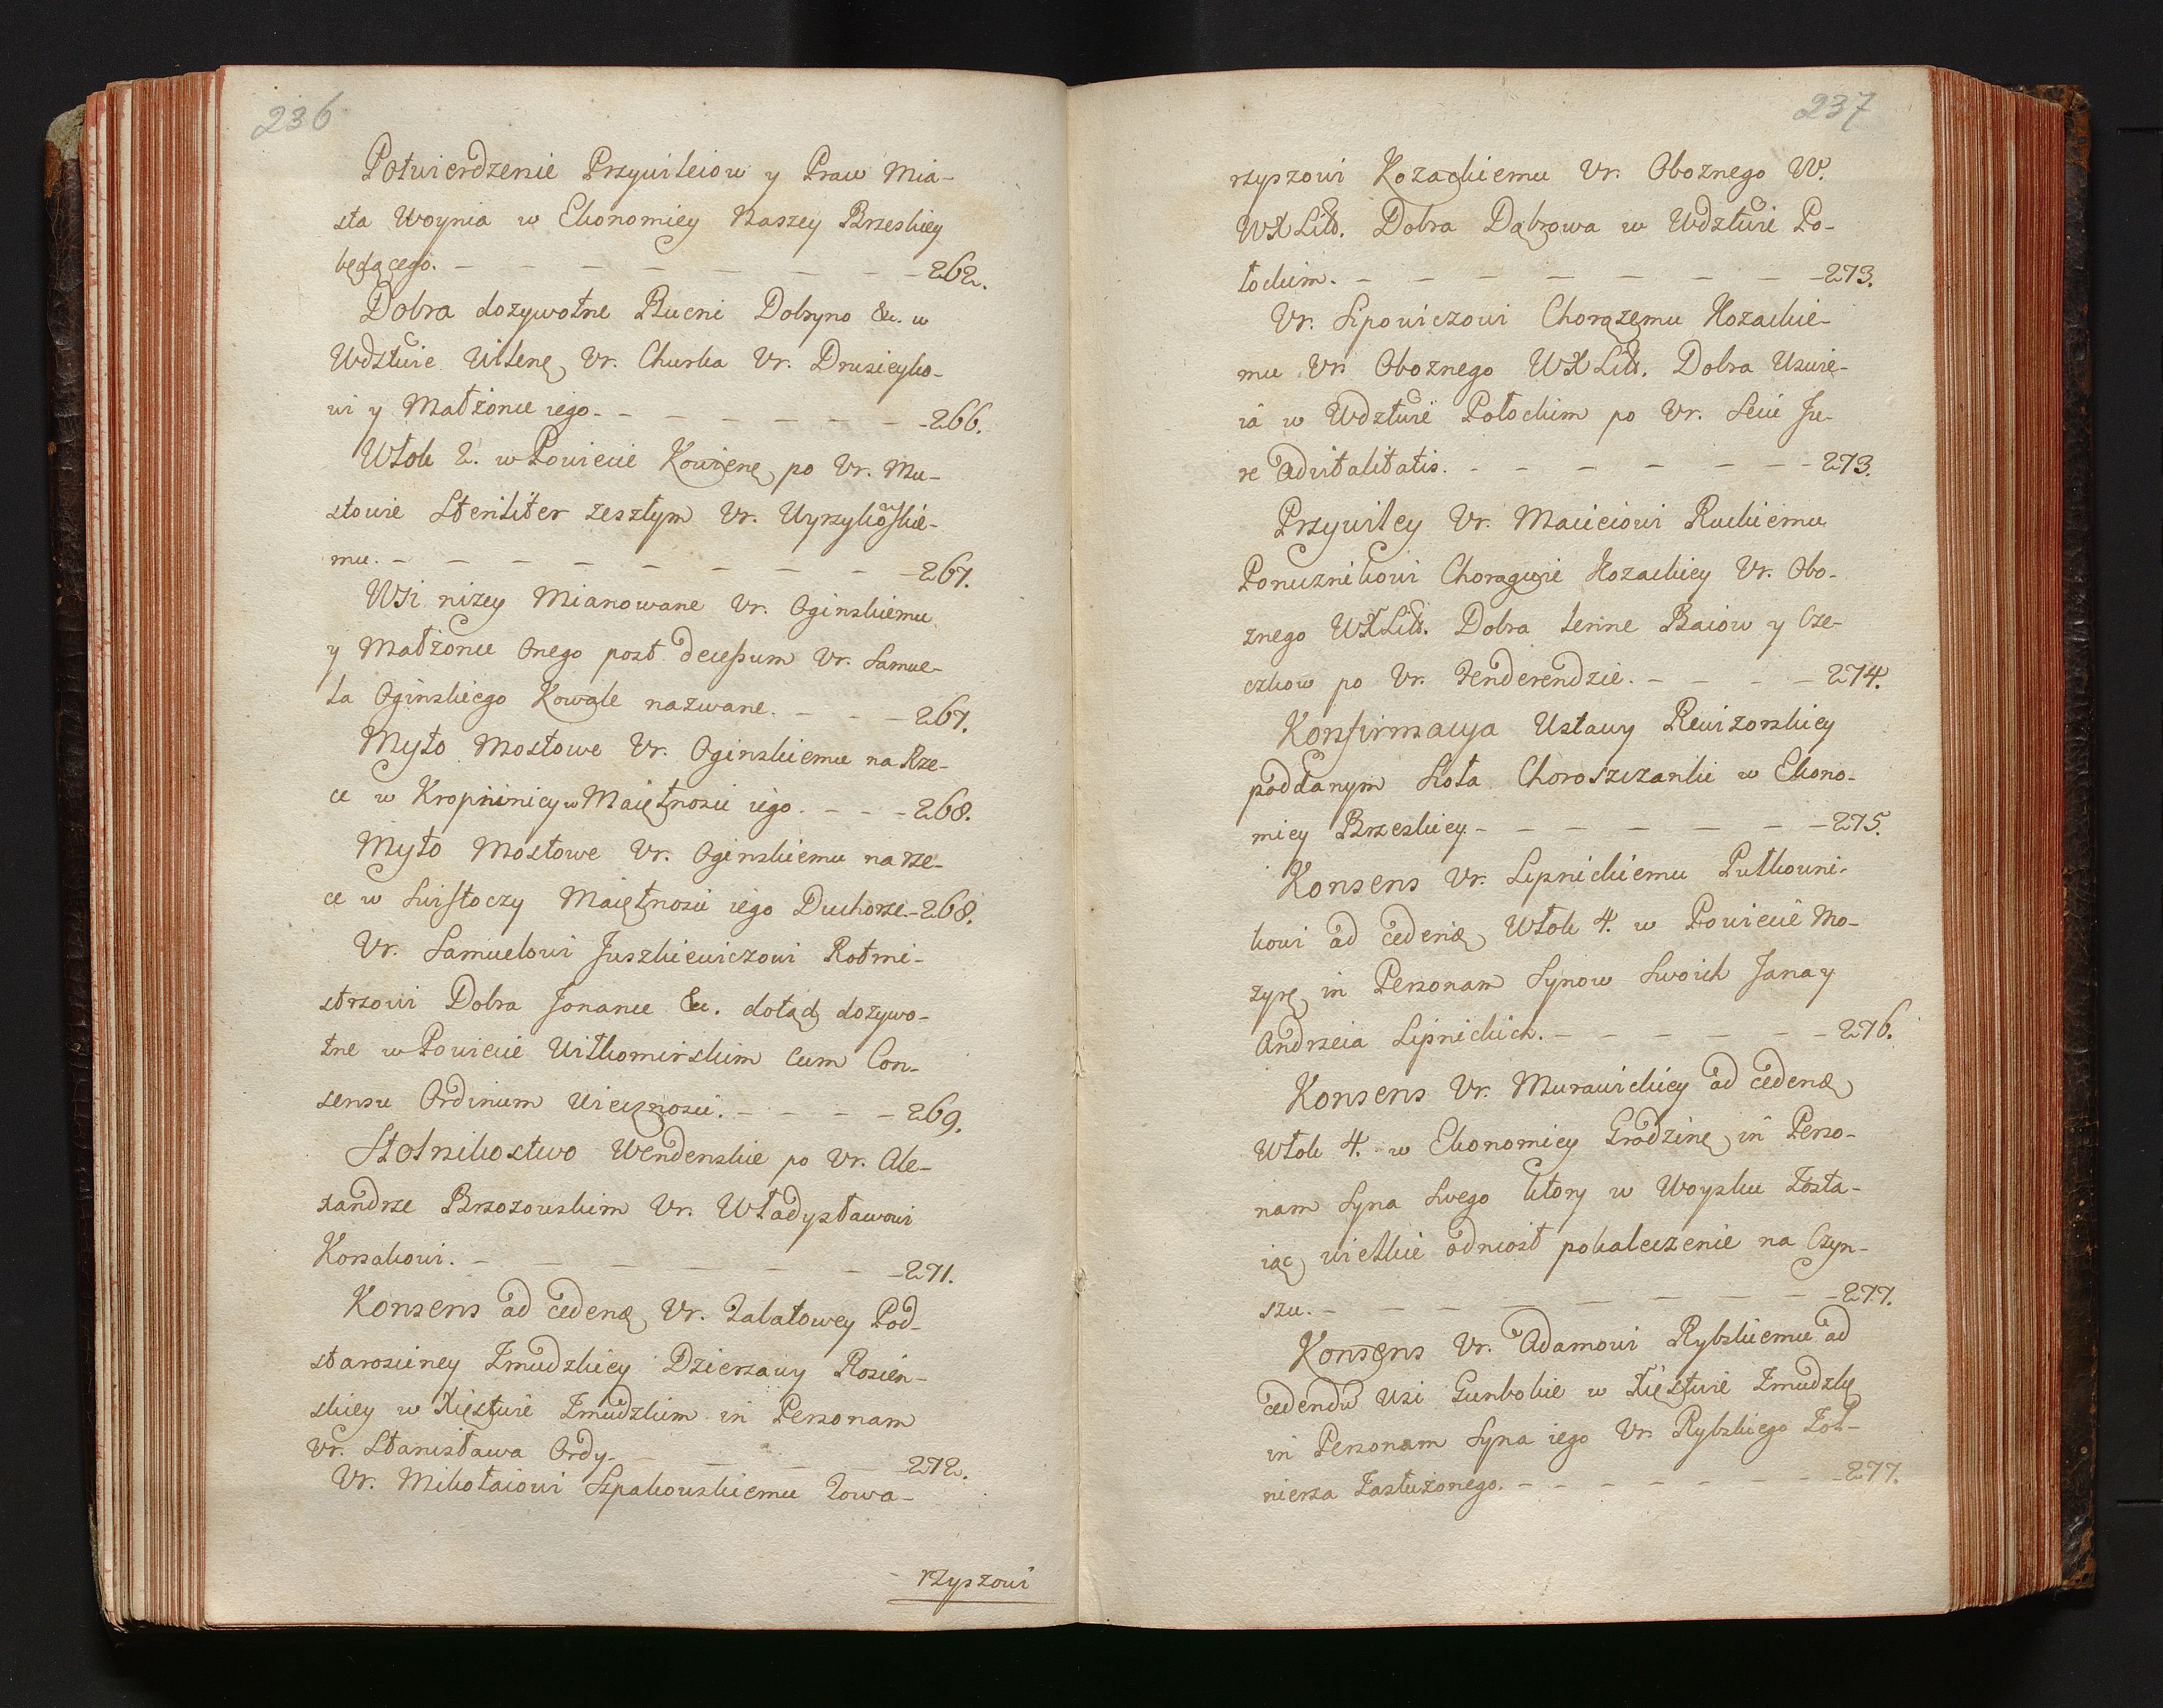 236
Potwierdzenie Przywileiow y Praw Mia-
sta Woynia w Ekonomiey Naszey Brzeskiey
będącego. - - - - - - - - 262.
Dobra dozywotne Bucni Dobryno &c. w
Wdztwie Wilenę Vr. Churka Vr. Drusieyko-
wi y Małżonce iego. - - - - - - 266.
Włok 2. w Powiecie Kowienę po Vr. Mu-
stowie Steriliter zeszłym Vr. Uyrzykowskie-
mu. - - - - - - - - - 267.
Wsi nizey Mianowane Vr. Oginskiemu
y Małżonce Onego post decessum Vr. Samue-
la Oginskiego Kowale nazwane. - - - 267.
Myto Mostowe Vr. Oginskiemu na Rze-
ce w Kropiwnicy w Maiętnosci iego. - - - 268.
Myto Mostowe Vr. Oginskiemu na rze-
ce w Swisłoczy Maiętnosci iego Duchorze. - 268.
Vr. Samuelowi Juszkiewiczowi Rotmi-
strzowi Dobra Jonance &c. dotąd dozywo-
tne w Powiecie Wiłkomirskim cum Con-
sensu Ordinum Wiecznosci. - - - - 269.
Stolnikostwo Wendenskie po Vr. Ale-
xandrze Brzozowskim Vr. Władysławowi
Korsakowi. - - - - - - - 271.
Konsens ad cedenȩ Vr. Zabałowey Pod-
starosciney Zmudzkiey Dzierzawy Rosien-
skiey w Xięstwie Zmudzkim in Personam
Vr. Stanisława Ordy. - - - - - 272.
Vr. Mikołaiowi Szpakowskiemu Towa-
rzyszowi
237
rzyszowi Kozackiemu Vr. Oboznego W.
WXLitt. Dobra Dąbrowa w Wdztwie Po-
łockim. - - - - - - - - 273.
Vr. Lipowiczowi Chorązemu Kozackie-
mu Vr. Oboznego WXLitt. Dobra Uswie-
ia w Wdztwie Połockim po Vr. Lewie Ju-
re advitalitatis. - - - - - - - 273.
Przywiley Vr. Macieiowi Ruckiemu
Porucznikowi Choragwie Kozackiey Vr. Obo-
znego WXLitt. Dobra Lenne Baiow y Cze-
czkow po Vr. Tenderendzie. - - - - 274.
Konfirmacya Ustawy Rewizorskiey
poddanym Sioła Choroszczanki w Ekono-
miey Brzeskiey. - - - - - - - 275.
Konsens Vr. Lipnickiemu Pułkowni-
kowi ad cedenȩ Włok 4. w Powiecie Mo-
zyrę in Personam Synow Swoich Jana y
Andrzeia Lipnickich. - - - - - - 276.
Konsens Vr. Murawickiey ad cedenȩ
Włok 4. w Ekonomiey Grodzinę in Perso-
nam Syna Swego ktory w Woysku Zosta-
iąc wielkie odniosł pokaleczenie na Czyn-
szu. - - - - - - - - 277.
Konsens Vr. Adamowi Rybskiemu ad
cedendu Wsi Gunbokie w Xięstwie Zmudzkę
in Personam Syna iego Vr. Rybskiego Żoł-
nierza Zasłużonego. - - - - - - - 277.